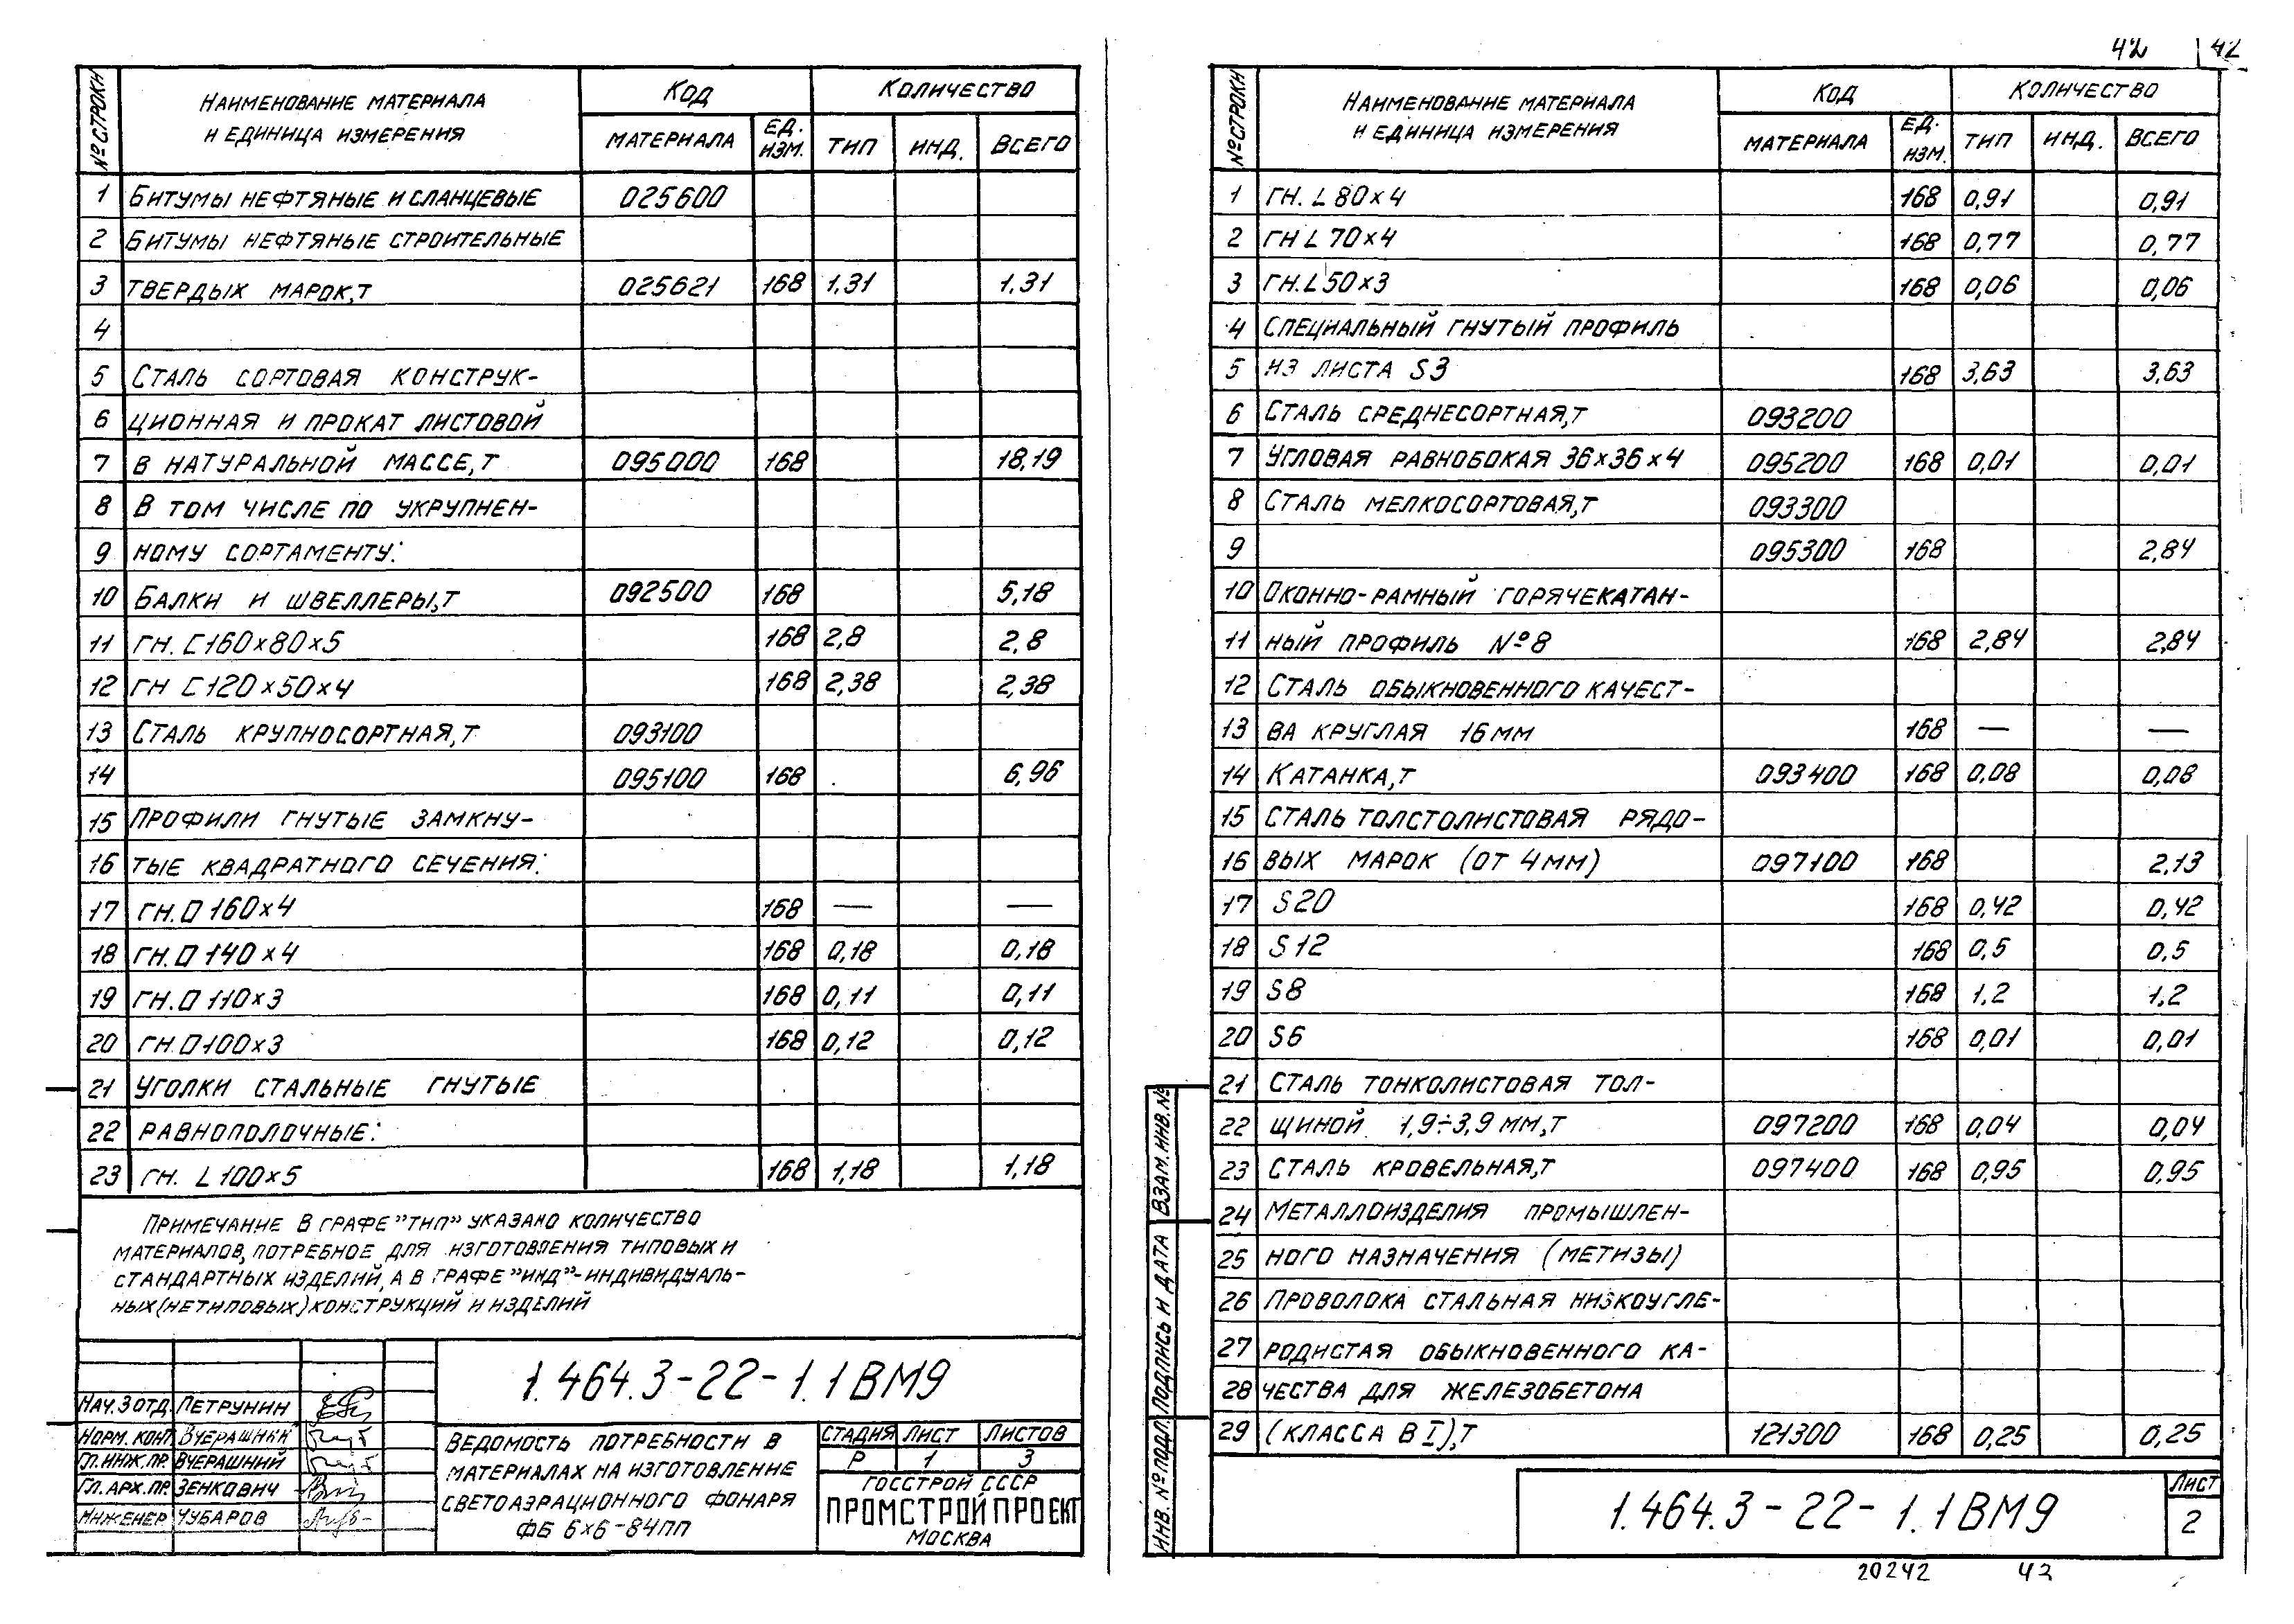 42 42
№ СТРОКИ НАИМЕНОВАНИЕ МАТЕРИАЛА И ЕДИНИЦА ИЗМЕРЕНИЯ КОД КОЛИЧЕСТВО
МАТЕРИАЛА ЕД. ИЗМ. ТИП ИНД. ВСЕГО
1 БИТУМЫ НЕФТЯНЫЕ И СЛАНЦЕВЫЕ 025600
2 БИТУМЫ НЕФТЯНЫЕ СТРОИТЕЛЬНЫЕ
3 ТВЕРДЫХ МАРОК,Т 025621 168 1,31 1,31
4
5 СТАЛЬ СОРТОВАЯ КОНСТРУК-
6 ЦИОННАЯ И ПРОКАТ ЛИСТОВОЙ
7 В НАТУРАЛЬНОЙ МАССЕ,Т 095000 168 18,19
8 В ТОМ ЧИСЛЕ ПО УКРУПНЕН-
9 НОМУ СОРТАМЕНТУ:
10 БАЛКИ И ШВЕЛЛЕРЫ,Т 092500 168 5,18
11 ГН. [160×80×5 168 2,8 2,8
12 ГН [120×50×4 168 2,38 2,38
13 СТАЛЬ КРУПНОСОРТНАЯ,Т 093100
14 095100 168 6,96
15 ПРОФИЛИ ГНУТЫЕ ЗАМКНУ-
16 ТЫЕ КВАДРАТНОГО СЕЧЕНИЯ:
17 ГН.□ 160×4 168 — —
18 ГН.□ 140×4 168 0,18 0,18
19 ГН.□ 110×3 168 0,11 0,11
20 ГН.□100×3 168 0,12 0,12
21 УГОЛКИ СТАЛЬНЫЕ ГНУТЫЕ
22 РАВНОПОЛОЧНЫЕ:
23 ГН. L 100×5 168 1,18 1,18
ПРИМЕЧАНИЕ В ГРАФЕ "ТИП" УКАЗАНО КОЛИЧЕСТВО
МАТЕРИАЛОВ, ПОТРЕБНОЕ ДЛЯ ИЗГОТОВЛЕНИЯ ТИПОВЫХ И
СТАНДАРТНЫХ ИЗДЕЛИЙ, А В ГРАФЕ "ИНД"-ИНДИВИДУАЛЬ-
НЫХ (НЕТИПОВЫХ) КОНСТРУКЦИЙ И ИЗДЕЛИЙ
1.464.3-22-1.1ВМ9
НАЧ.3 ОТД. ПЕТРУНИН
НОРМ. КОНТ. ВЧЕРАШНИЙ
ГЛ.ИНЖ.ПР. ВЧЕРАШНИЙ
ГЛ.АРХ.ПР. ЗЕНКОВИЧ
ИНЖЕНЕР ЧУБАРОВ
ВЕДОМОСТЬ ПОТРЕБНОСТИ В
МАТЕРИАЛАХ НА ИЗГОТОВЛЕНИЕ
СВЕТОАЭРАЦИОННОГО ФОНАРЯ
ФБ 6×6-84ПП
СТАДИЯ ЛИСТ ЛИСТОВ
Р 1 3
ГОССТРОЙ СССР
ПРОМСТРОЙПРОЕКТ
МОСКВА
№ СТРОКИ НАИМЕНОВАНИЕ МАТЕРИАЛА И ЕДИНИЦА ИЗМЕРЕНИЯ КОД КОЛИЧЕСТВО
МАТЕРИАЛА ЕД. ИЗМ. ТИП ИНД. ВСЕГО
1 ГН. L 80×4 168 0,91 0,91
2 ГН L 70×4 168 0,77 0,77
3 ГН. L 50×3 168 0,06 0,06
4 СПЕЦИАЛЬНЫЙ ГНУТЫЙ ПРОФИЛЬ
5 ИЗ ЛИСТА S3 168 3,63 3,63
6 СТАЛЬ СРЕДНЕСОРТНАЯ,Т 093200
7 УГЛОВАЯ РАВНОБОКАЯ 36×36×4 095200 168 0,01 0,01
8 СТАЛЬ МЕЛКОСОРТОВАЯ,Т 093300
9 095300 168 2,84
10 ОКОННО-РАМНЫЙ ГОРЯЧЕКАТАН-
11 НЫЙ ПРОФИЛЬ №8 168 2,84 2,84
12 СТАЛЬ ОБЫКНОВЕННОГО КАЧЕСТ-
13 ВА КРУГЛАЯ 16 ММ 168 — —
14 КАТАНКА,Т 093400 168 0,08 0,08
15 СТАЛЬ ТОЛСТОЛИСТОВАЯ РЯДО-
16 ВЫХ МАРОК (ОТ 4 ММ) 097100 168 2,13
17 S20 168 0,42 0,42
18 S12 168 0,5 0,5
19 S8 168 1,2 1,2
20 S6 168 0,01 0,01
21 СТАЛЬ ТОНКОЛИСТОВАЯ ТОЛ-
22 ЩИНОЙ 1,9÷3,9 ММ,Т 097200 168 0,04 0,04
23 СТАЛЬ КРОВЕЛЬНАЯ,Т 097400 168 0,95 0,95
24 МЕТАЛЛОИЗДЕЛИЯ ПРОМЫШЛЕН-
25 НОГО НАЗНАЧЕНИЯ (МЕТИЗЫ)
26 ПРОВОЛОКА СТАЛЬНАЯ НИЗКОУГЛЕ-
27 РОДИСТАЯ ОБЫКНОВЕННОГО КА-
28 ЧЕСТВА ДЛЯ ЖЕЛЕЗОБЕТОНА
29 (КЛАССА В I),Т 121300 168 0,25 0,25
ИНВ. № ПОДЛ. ПОДПИСЬ И ДАТА ВЗАМ.ИНВ.№
1.464.3-22-1.1ВМ9
ЛИСТ
2
20242 43